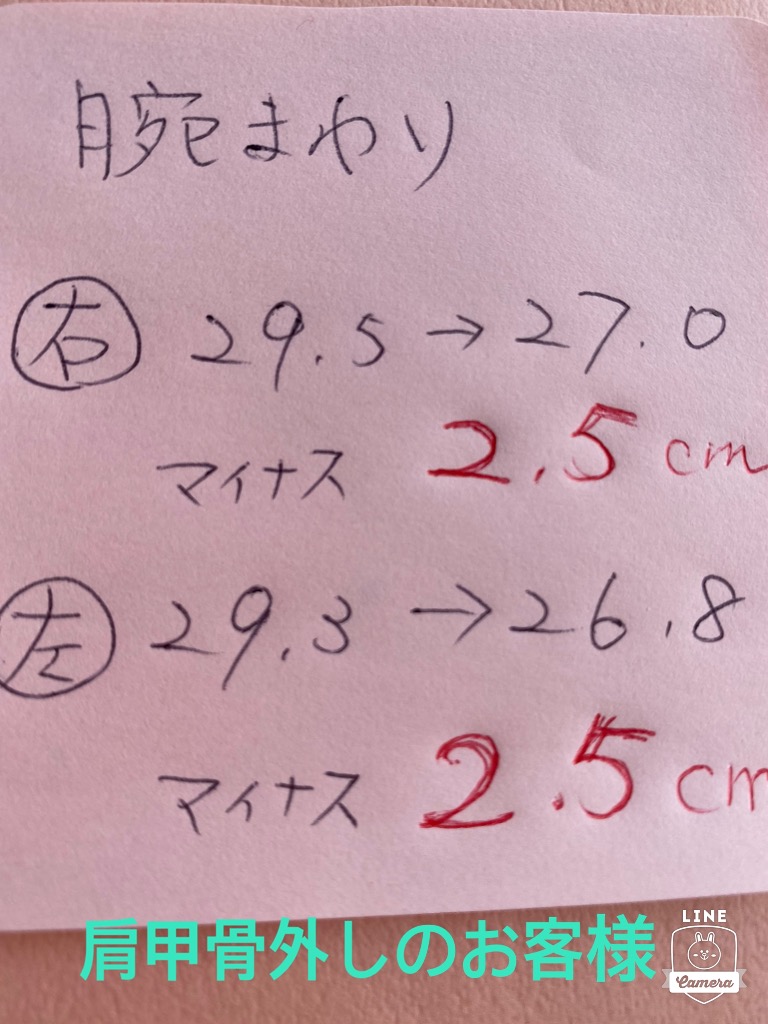 腕まわり
右 29.5→27.0
マイナス 2.5cm
左 29.3→26.8
マイナス 2.5cm
肩甲骨外しのお客様
LINE
Camera